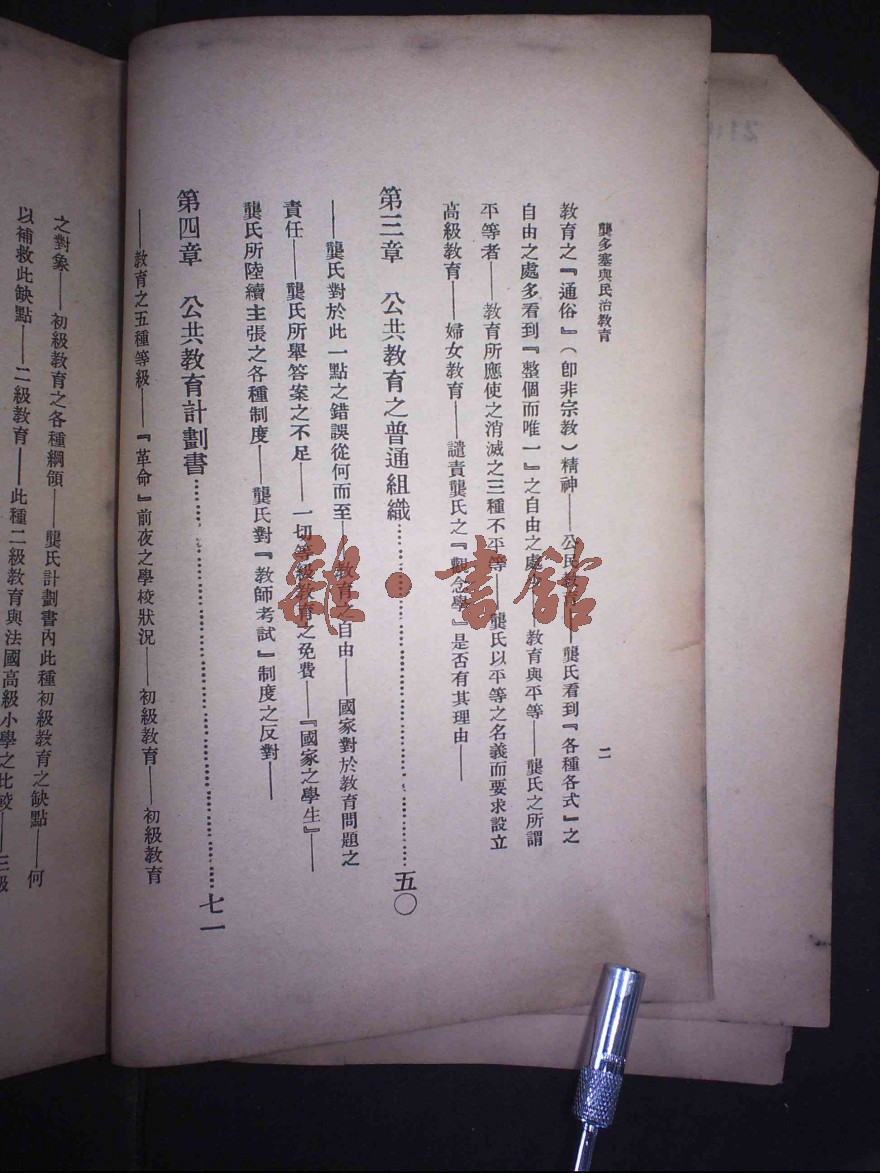 龔多塞與民治教育
二
教育之『通俗』（卽非宗教）精神——公民教育——龔氏看到『各種各式』之
自由之處多看到『整個而唯一』之自由之處少——教育與平等——龔氏之所謂
平等者——教育所應使之消滅之三種不平等——龔氏以平等之名義而要求設立
高級教育——婦女教育——譴責龔氏之『觀念學』是否有其理由——
第三章　公共教育之普通組織……五〇
——龔氏對於此一點之錯誤從何而至——教育之自由——國家對於教育問題之
責任——龔氏所舉答案之不足——一切等級教育之免費——『國家之學生』——
龔氏所陸續主張之各種制度——龔氏對『教師考試』制度之反對——
第四章　公共教育計劃書……七一
——教育之五種等級——『革命』前夜之學校狀況——初級教育——初級教育
之對象——初級教育之各種綱領——龔氏計劃書內此種初級教育之缺點——何
以補救此缺點——二級教育——此種二級教育與法國高級小學之比較——三級
雜·書館